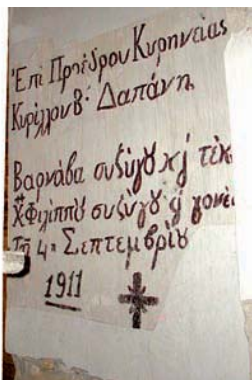 Ἐπὶ Προέδρου Κυρηνείας
Κυρίλλου Β΄. Δαπάνῃ
Βαρνάβα συζύγου κὶ τέκ
Χ Φιλίππου συζύγου ϗ γονέ
Τῇ 4ῃ Σεπτεμβρίου
1911